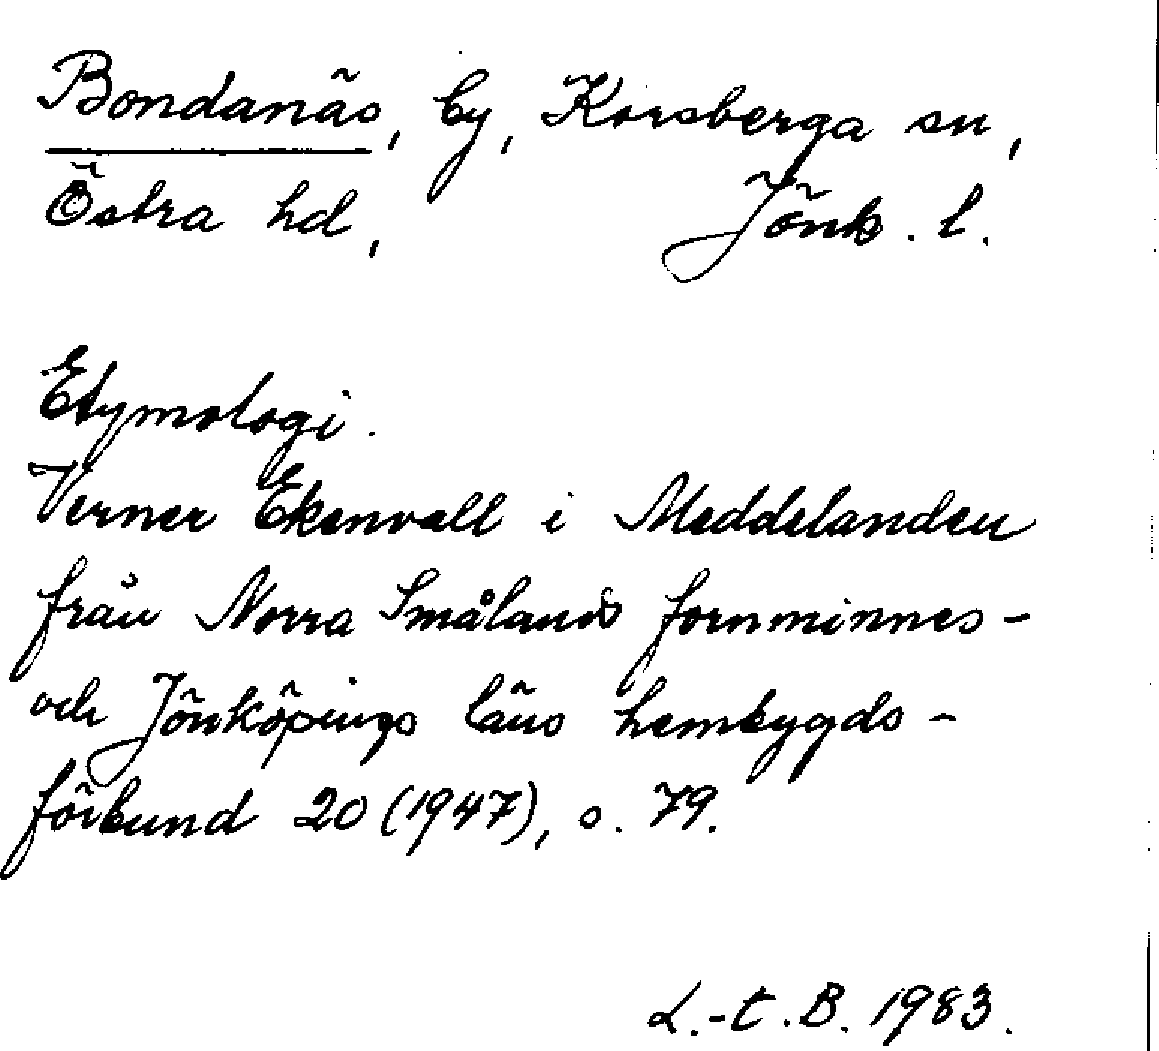 Bondanäs, by, Korsberga sn,
Östra hd, Jönk. l.
Etymologi.
Verner Ekenvall i Meddelanden
från Norra Smålands fornminnes-
och Jönköpings läns hembygds-
förbund 20 (1947), s. 79.
L.-E. B. 1983.